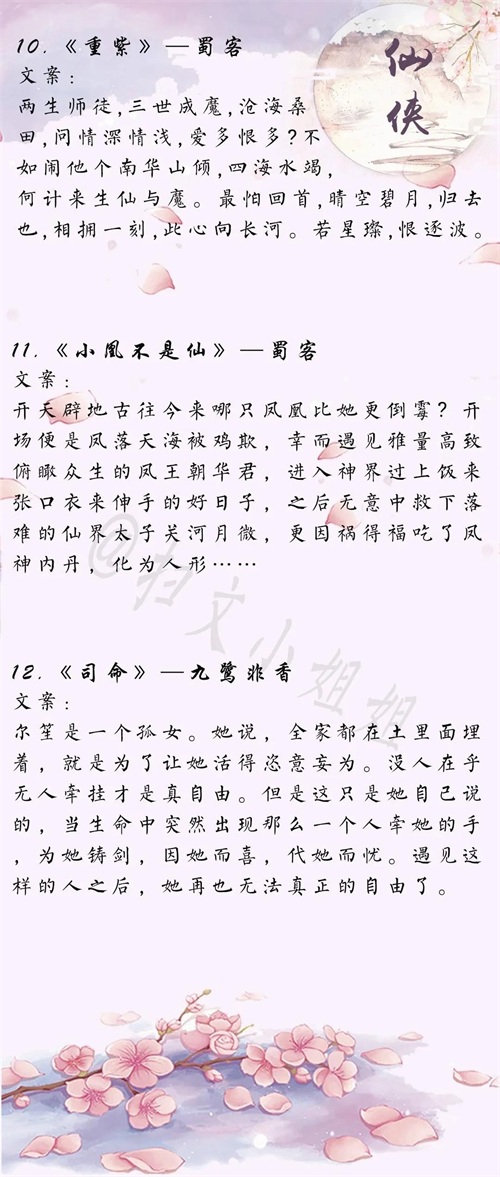 仙侠
10.《重紫》—蜀客
文案：
两生师徒,三世成魔,沧海桑
田,问情深情浅,爱多恨多?不
如闹他个南华山倾,四海水竭,
何计来生仙与魔。最怕回首,晴空碧月,归去
也,相拥一刻,此心向长河。若星璨,恨逐波。
11.《小凰不是仙》—蜀客
文案：
开天辟地古往今来哪只凤凰比她更倒霉？开
场便是凤落天海被鸡欺，幸而遇见雅量高致
俯瞰众生的凤王朝华君，进入神界过上饭来
张口衣来伸手的好日子，之后无意中救下落
难的仙界太子关河月微，更因祸得福吃了凤
神内丹，化为人形……
12.《司命》—九鹭非香
文案：
尔笙是一个孤女。她说，全家都在土里面埋
着，就是为了让她活得恣意妄为。没人在乎
无人牵挂才是真自由。但是这只是她自己说
的，当生命中突然出现那么一个人牵她的手
，为她铸剑，因她而喜，代她而忧。遇见这
样的人之后，她再也无法真正的自由了。
@扫文小姐姐